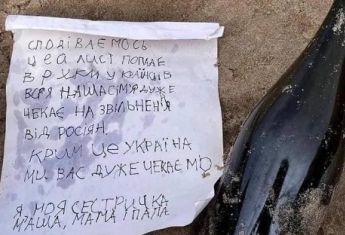 СПОДІВАЄМОСЬ
ЦЕЙ ЛИСТ ПОПАДЕ
В РУКИ УКРАЇНЦІВ
ВСЯ НАША СІМ'Я ДУЖЕ
ЧЕКАЄ НА ЗВІЛЬНЕННЯ
ВІД РОСІЯН.
КРИМ ЦЕ УКРАЇНА
МИ ВАС ДУЖЕ ЧЕКАЄМО
Я, МОЯ СЕСТРИЧКА
МАША, МАМА І ПАПА